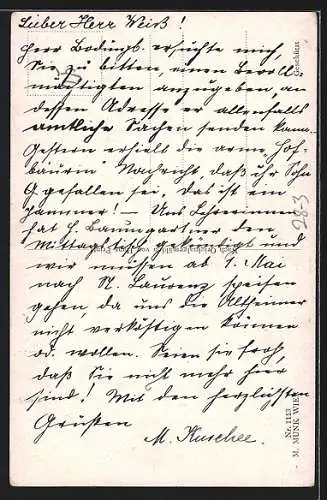 Lieber Herr Weiß!
Herr Bodings. ersuchte mich,
Sie zu bitten, einen Bevoll-
mächtigten anzugeben, an
dessen Adresse er allenfalls
amtliche Sachen senden kann.
Gestern erhielt die arme Hof-
bäurin Nachricht, daß ihr Sohn
G. gefallen sei. Das ist ein
Jammer! — Uns Lehrerinnen
hat H. Baumgartner den
Mittagstisch gekündigt und
wir müssen ab 1. Mai
nach St. Laurenz speisen
gehen, da uns die Altheimer
nicht verköstigen können
od. wollen. Seien Sie froh,
daß Sie nicht mehr hier
sind! Mit den herzlichsten
Grüßen
M. Kuschee.
283
Geschützt
Nr. 1113
M. MUNK WIEN